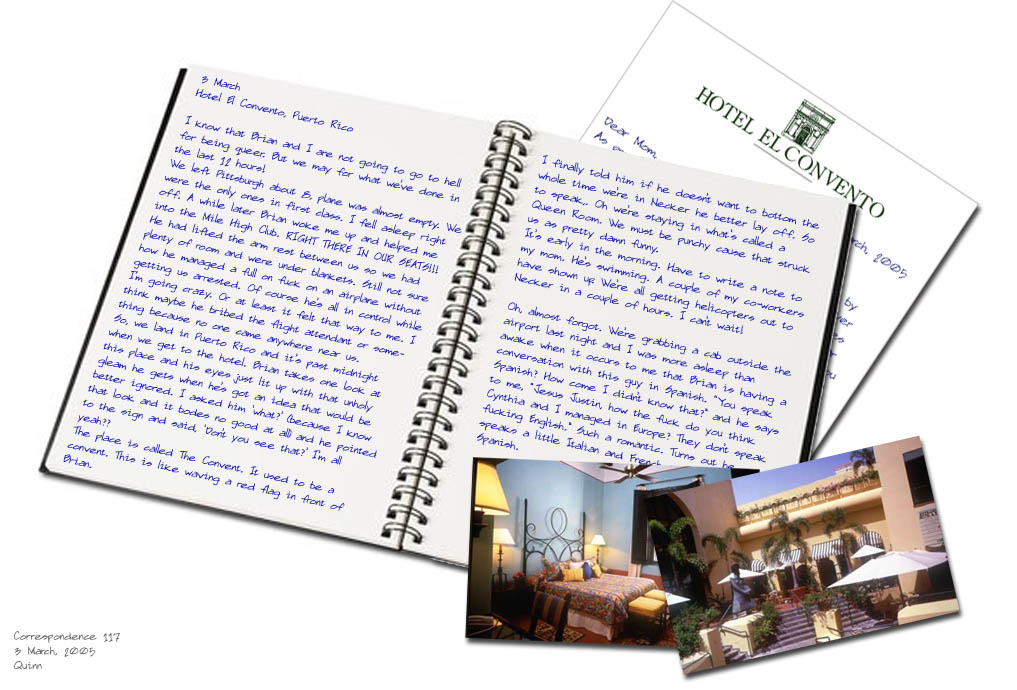 3 March
Hotel El Convento, Puerto Rico
I know that Brian and I are not going to go to hell
for being queer. But we may for what we've done in
the last 12 hours!
We left Pittsburgh about 8, plane was almost empty. We
were the only ones in first class. I fell asleep right
off. A while later Brian woke me up and helped me
into the Mile High Club. RIGHT THERE IN OUR SEATS!!!
He had lifted the arm rest between us so we had
plenty of room and were under blankets. Still not sure
how he managed a full on fuck on an airplane without
getting us arrested. Of course he's all in control while
I'm going crazy. Or at least it felt that way to me. I
think maybe he bribed the flight attendant or some-
thing because no one came anywhere near us.
So, we land in Puerto Rico and it's past midnight
when we get to the hotel. Brian takes one look at
this place and his eyes just lit up with that unholy
gleam he gets when he's got an idea that would be
better ignored. I asked him 'what?' (because I know
that look and it bodes no good at all) and he pointed
to the sign and said, 'Don't you see that?' I'm all
yeah??
The place is called The Convent. It used to be a
convent. This is like waving a red flag in front of
Brian.
I finally told him if he doesn't want to bottom the
whole time we're in Necker he better lay off. So
to speak. Oh we're staying in what's called a
Queen Room. We must be punchy cause that struck
us as pretty damn funny.
It's early in the morning. Have to write a note to
my mom. He's swimming. A couple of my co-workers
have shown up. We're all getting helicopters out to
Necker in a couple of hours. I can't wait!
Oh, almost forgot. We're grabbing a cab outside the
airport last night and I was more asleep than
awake when it occurs to me that Brian is having a
conversation with this guy in Spanish. "You speak
Spanish? How come I didn't know that?" and he says
to me, "Jesus Justin, how the fuck do you think
Cynthia and I managed in Europe? They don't speak
fucking English." Such a romantic. Turns out he
speaks a little Italian and French
Spanish.
HOTEL EL CONVENTO
Dear Mom,
As
rch, 2005
by
you
Correspondence 117
3 March, 2005
Quinn